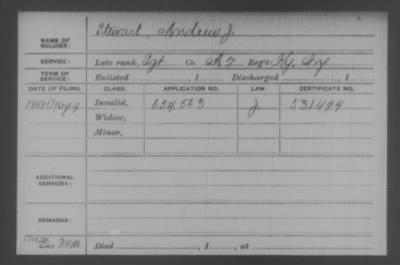 NAME OF SOLDIER: Stewart, Andrew J.
SERVICE: Late rank, Sgt Co. A 7 Reg't Ky. Inf
TERM OF SERVICE: Enlisted , 1 Discharged , 1
DATE OF FILING. CLASS. APPLICATION NO. LAW. CERTIFICATE NO.
1888 May 9 Invalid, 654,563 J 531494
Widow,
Minor,
ADDITIONAL SERVICES:
REMARKS:
Died , 1 , at